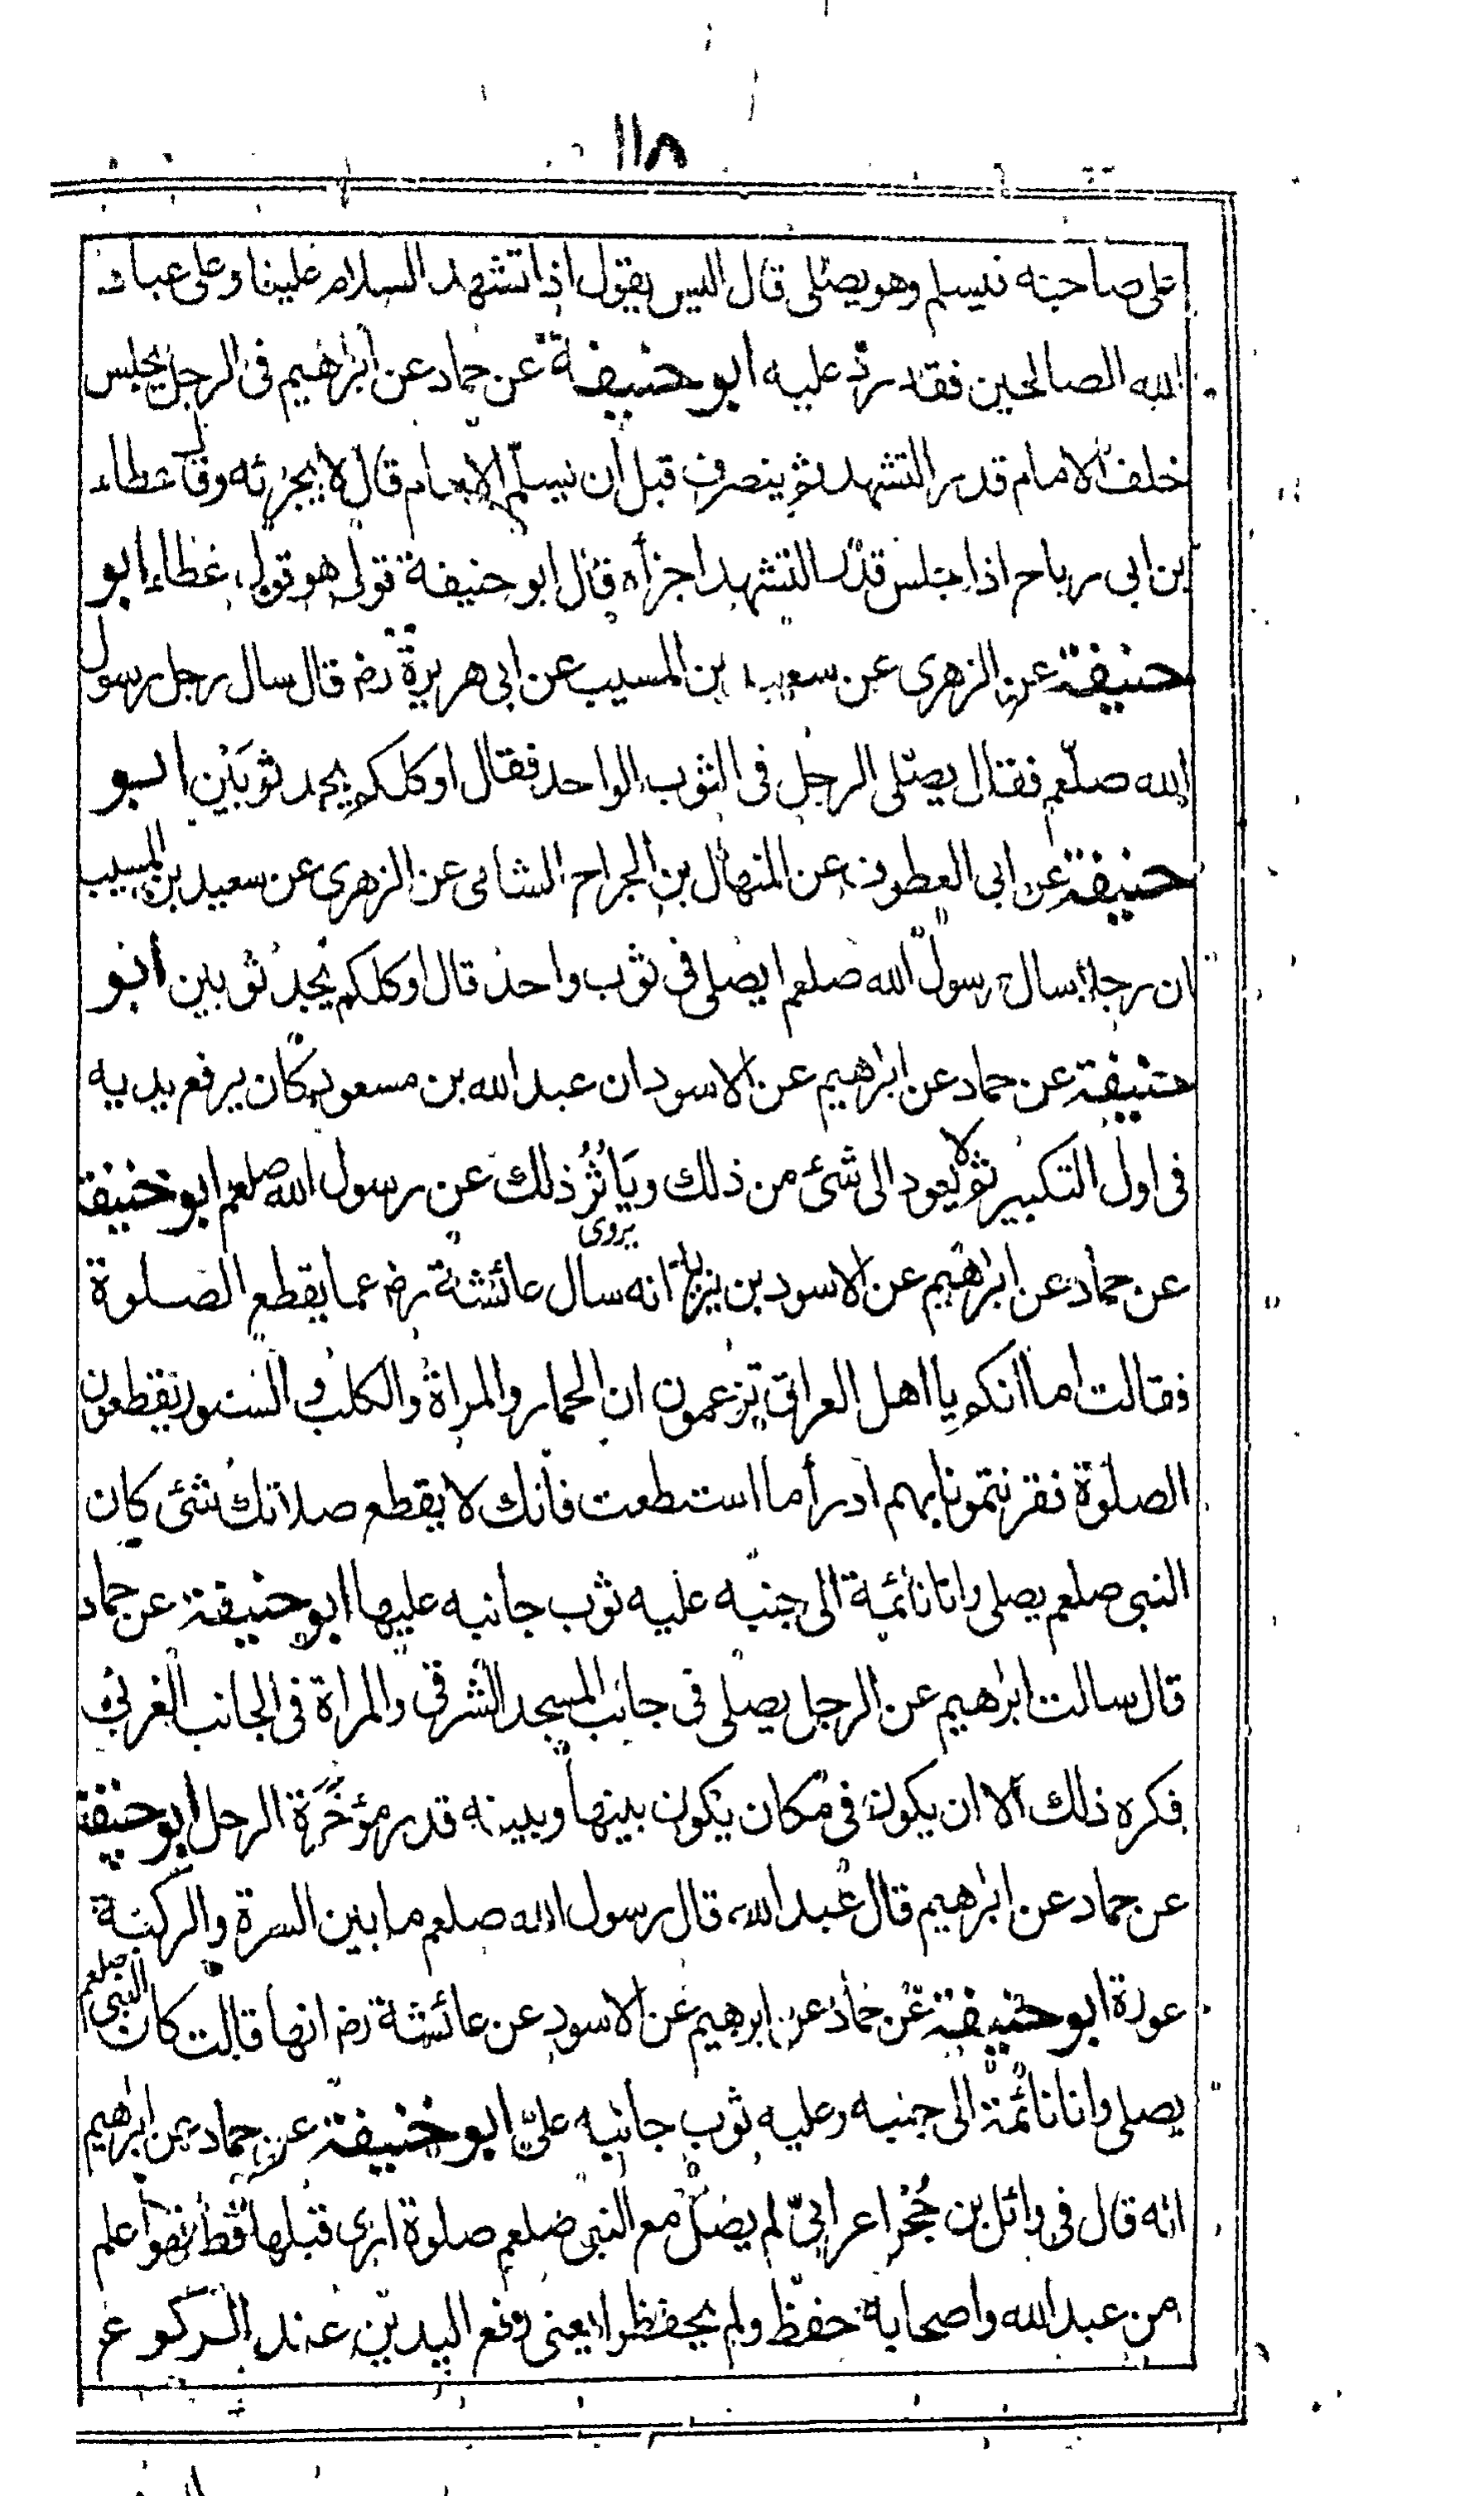 ١١٨
على صاحبه فيسلم وهو يصلى قال اليس يقول اذا تشهد السلام علينا وعلى عباد
الله الصالحين فقد رد عليه ابو حنيفة عن حماد عن ابرٰهيم فى الرجل يجلس
خلف الامام قدر التشهد ثم ينصرف قبل ان يسلّم الامام قال لا يجزئه وقال عطاء
بن ابى رباح اذا جلس قدر التشهد اجزأه قال ابو حنيفة قولى هو قول عطاء ابو
حنيفة عن الزهرى عن سعيد بن المسيب عن ابى هريرة رض قال سال رجل رسول
الله صلّعم فقال يصلّى الرجل فى الثوب الواحد فقال اوكلكم يجد ثوبَيْن ابو
حنيفة عن ابى العطوف عن المنهال بن الجراح الشامى عن الزهرى عن سعيد بن المسيب
ان رجلا سال رسول الله صلعم ايصلى فى ثوب واحد قال اوكلكم يجد ثوبين ابو
حنيفة عن حماد عن ابرٰهيم عن الاسود ان عبد الله بن مسعود كان يرفع يديه
فى اول التكبير ثم لا يعود الى شئ من ذلك ويَأثُرُ ذلك عن رسول الله صلعم ابو حنيفة
يروى
عن حماد عن ابرٰهيم عن الاسود بن يزيد انه سال عائشة رض عما يقطع الصلوة
فقالت اما انكم يا اهل العراق تزعمون ان الحمار والمراة والكلب والسنور يقطعون
الصلوة فقرنتمونا بهم ادرأ ما استطعت فانك لا يقطع صلاتك شئ كان
النبى صلعم يصلى وانا نائمة الى جنبه عليه ثوب جانبه عليها ابو حنيفة عن حماد
قال سالت ابرٰهيم عن الرجل يصلى فى جانب المسجد الشرقى والمراة فى الجانب الغربى
فكره ذلك الا ان يكون فى مكان يكون بينها وبينه قدر مؤخّرَة الرحل ابو حنيفة
عن حماد عن ابرٰهيم قال عبد الله قال رسول الله صلعم ما بين السرة والركبة
عورة ابو حنيفة عن حماد عن ابرهيم عن الاسود عن عائشة رض انها قالت كان النبى صلعم
يصلى وانا نائمة الى جنبه وعليه ثوب جانبه علىّ ابو حنيفة عن حماد عن ابرٰهيم
انه قال فى وائل بن حُجْر اعرابىّ لم يصلّ مع النبى صلعم صلوة ارى قبلها قط افهو اعلم
من عبد الله واصحابه حفظ ولم يحفظوا يعنى رفع اليدين عند الركوع